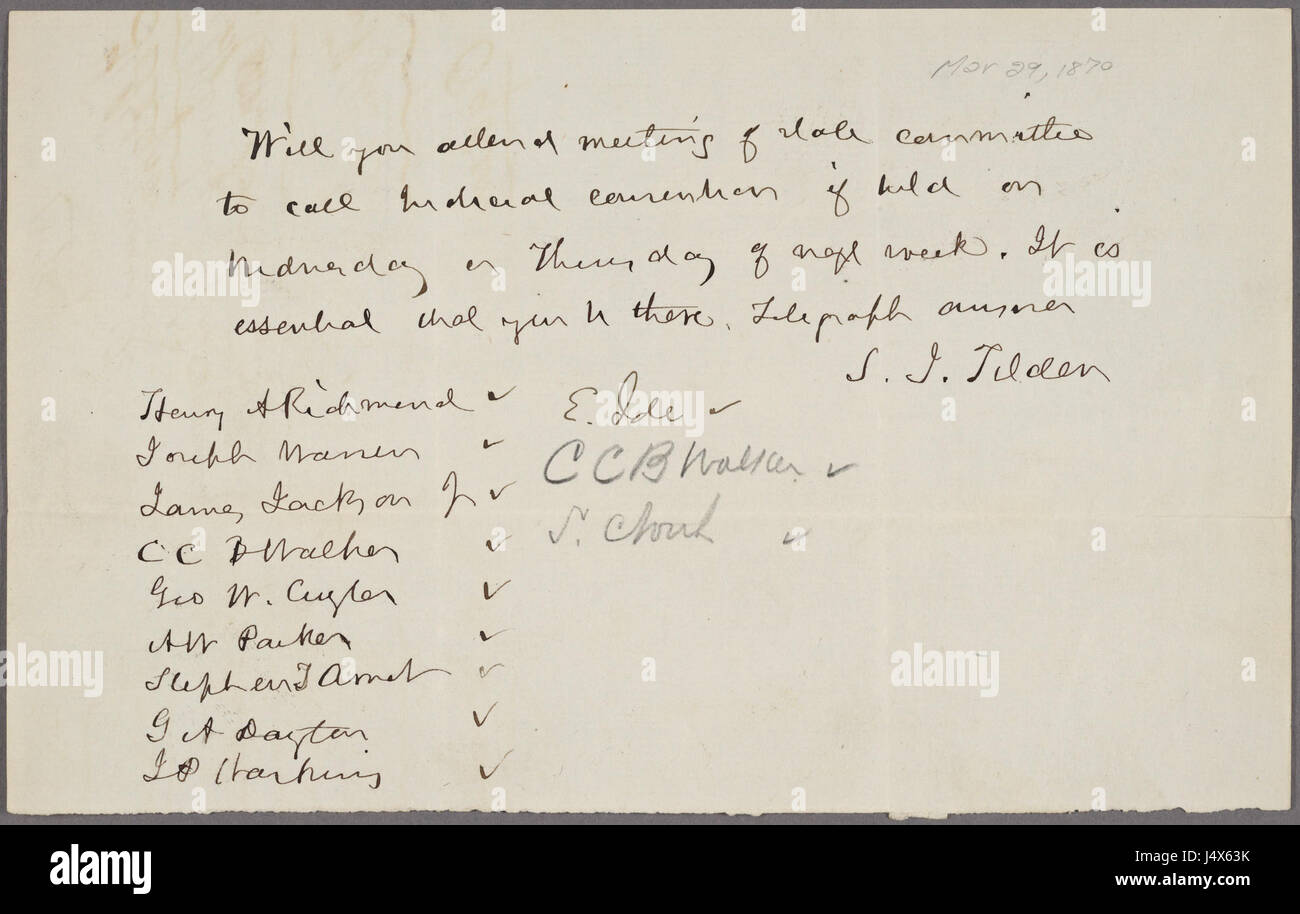 Mar 29, 1870
Will you attend meeting of State committee
to call Judicial convention if held on
Wednesday or Thursday of next week. It is
essential that you be there. Telegraph answer
S. J. Tilden
Henry A Richmond ✓
Joseph Warren ✓
James Jackson Jr ✓
C C B Walker ✓
Geo W. Cuyler ✓
A W Parker ✓
Stephen T Arnot ✓
G A Dayton ✓
✓
E. Ide ✓
C C B Walker ✓
S. ✓
alamy
a
alamy stock photo
Image ID: J4X63K
www.alamy.com